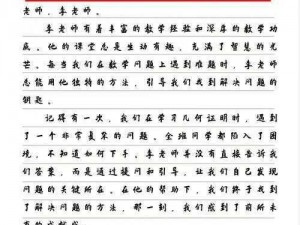 老师，李老师。
李老师有着丰富的教学经验和深厚的数学功
底，他的课堂总是生动有趣，充满了智慧的光
芒。每当我们在数学问题上遇到难题时，李老师
总能用他独特的方法，引导我们找到解决问题的
钥匙。
记得有一次，我们在学习几何证明时，遇到
了一个非常复杂的问题。全班同学都陷入了困
境，不知道如何下手。李老师并没有直接告诉我
们答案，而是通过提问和引导，让我们自己发现
问题的关键所在。在他的帮助下，我们终于找到
了解决问题的方法，那一刻，我们感到了前所未